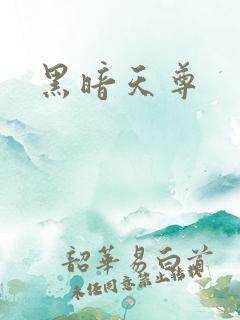 黑暗天尊
韶华易白首
未经同意禁止转载